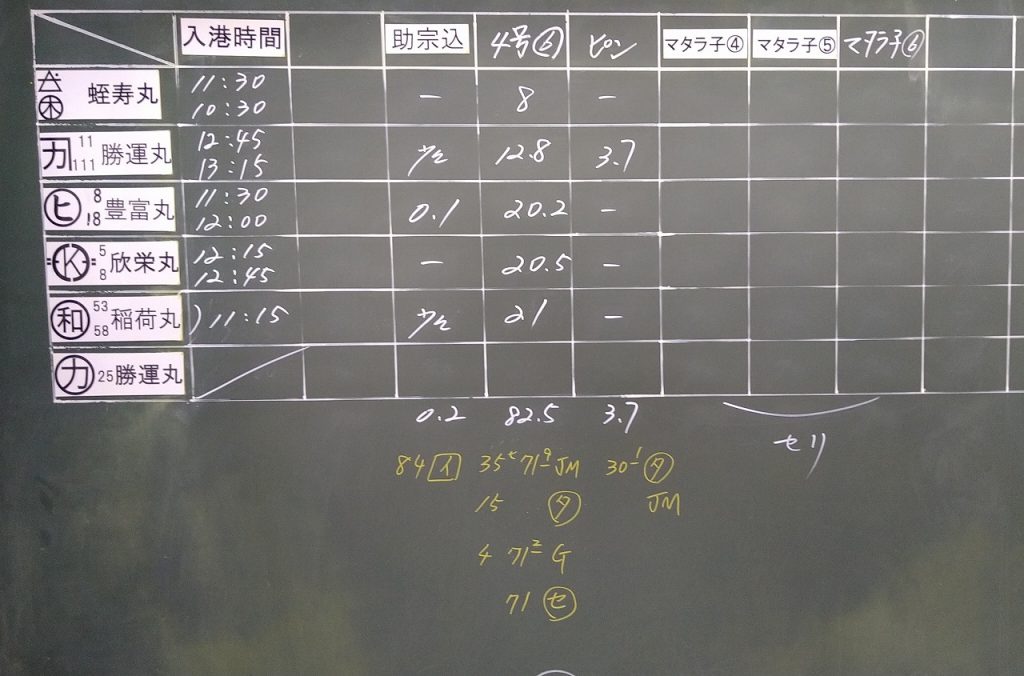 入港時間 助宗込 4号⑥ ピン マタラ子④ マタラ子⑤ マタラ子⑥
蛭寿丸 11:30 10:30 - 8 -
カ 11 111 勝運丸 12:45 13:15 少々 12.8 3.7
ヒ 8 18 豊富丸 11:30 12:00 0.1 20.2 -
K 5 8 欣栄丸 12:15 12:45 - 20.5 -
和 53 58 稲荷丸 11:15 少々 21 -
カ 25 勝運丸
0.2 82.5 3.7
セリ
84 イ 35 71 9 JM 30 1 タ
15 タ JM
4 71 2 G
71 セ